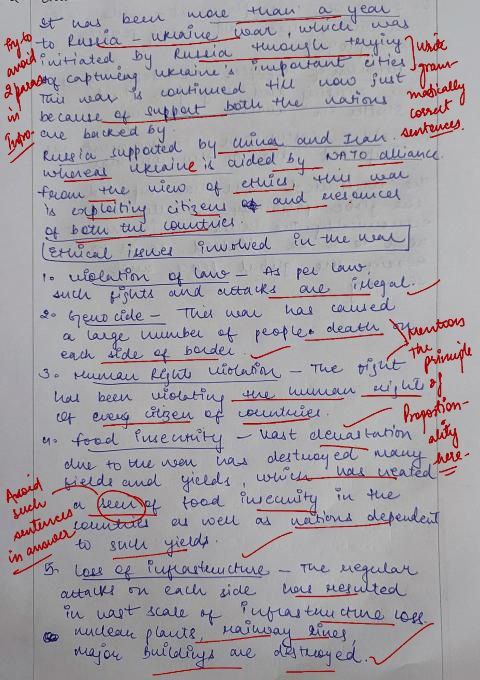 It has been more than a year
to Russia - Ukraine war, which was
initiated by Russia through trying
of capturing Ukraine's important cities
This war is continued till now just
because of support both the nations
are backed by.
Russia supported by China and Iran.
whereas Ukraine is aided by NATO alliance.
From the view of ethics, this war
is exploiting citizens and resources
of both the countries.
Ethical issues involved in the war
1. Violation of law - As per law,
such fights and attacks are illegal.
2. Genocide - This war has caused
a large number of people death on
each side of border.
3. Human Rights violation - The fight
has been violating the human rights
of every citizen of countries.
4. Food insecurity - Vast devastation
due to the war has destroyed many
fields and yields, which has created
a seen of food insecurity in the
countries as well as nations dependent
to such yields.
5. Loss of infrastructure - The regular
attacks on each side has resulted
in vast scale of infrastructure loss.
nuclear plants, railway lines,
major buildings are destroyed.
Try to
avoid
2 paras
in
Intro-
write
gram-
matically
correct
sentences.
Mention
the
principle
of
Proportion-
ality
here-
Avoid
such
sentences
in answer